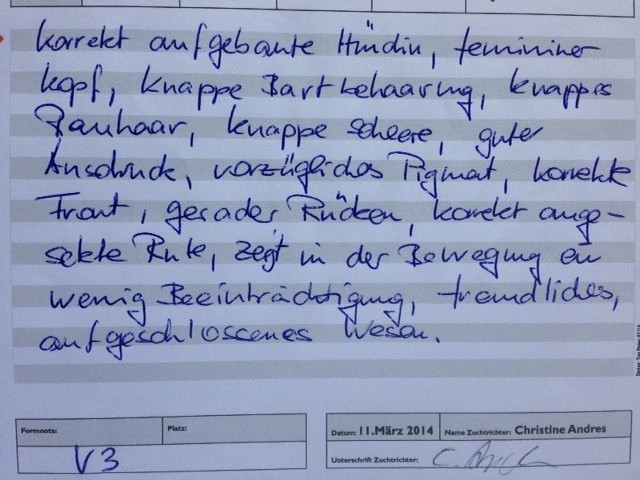 korrekt aufgebaute Hündin, femininer
Kopf, knappe Bartbehaarung, knappes
Rauhaar, knappe Schere, guter
Ausdruck, vorzügliches Pigmat, korrekte
Front, gerader Rücken, korrekt ange-
setzte Rute, zeigt in der Bewegung ein
wenig Beeinträchtigung, freundliches,
aufgeschlossenes Wesen.
Formnote: Platz: Datum: 11.März 2014 Name Zuchtrichter: Christine Andres
V3
Unterschrift Zuchtrichter: